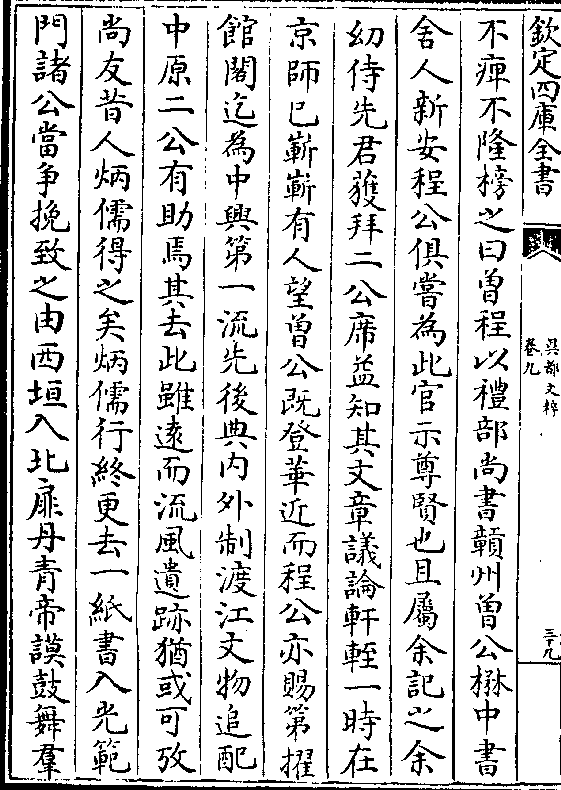 欽定四庫全書
吳都文粹
卷九
三十九
不痺不隆榜之曰曾程以禮部尚書贑州曾公楙中書
舍人新安程公俱嘗為此官示尊賢也且屬余記之余
幼侍先君獲拜二公席益知其文章議論軒輊一時在
京師已嶄嶄有人望曾公既登華近而程公亦賜第擢
館閣迄為中興第一流先後典内外制渡江文物追配
中原二公有助焉其去此雖逺而流風遺跡猶或可攷
尚友昔人炳儒得之矣炳儒行終更去一紙書入光範
門諸公當争挽致之由西垣入北扉丹青帝謨鼓舞羣